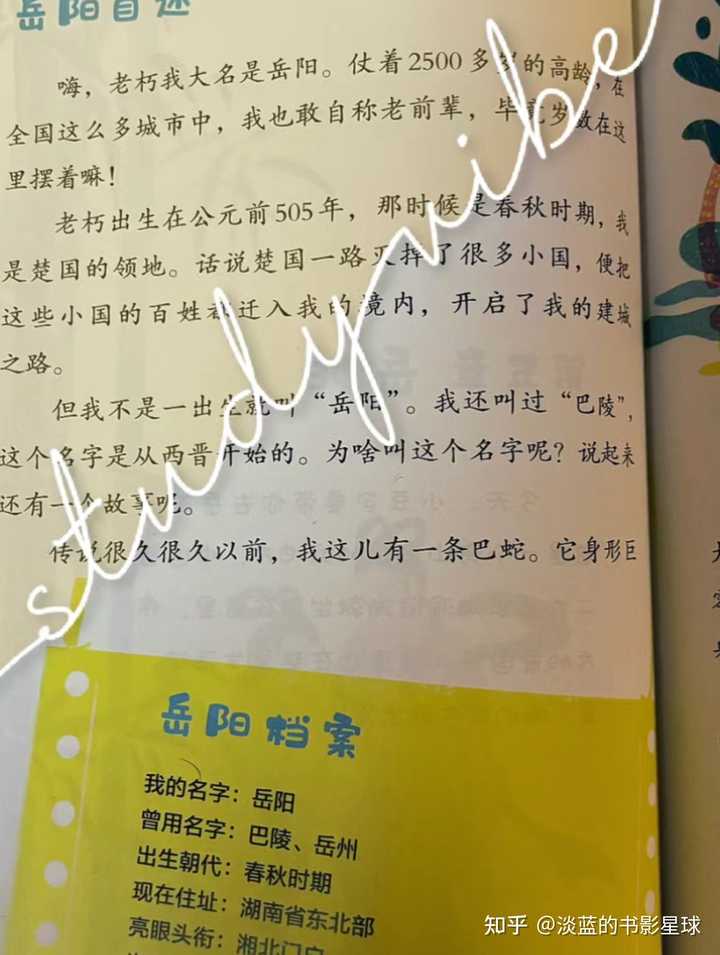 岳阳自述
嗨，老朽我大名是岳阳。仗着2500多岁的高龄，在
全国这么多城市中，我也敢自称老前辈，毕竟岁数在这
里摆着嘛！
老朽出生在公元前505年，那时候是春秋时期，我
是楚国的领地。话说楚国一路灭掉了很多小国，便把
这些小国的百姓都迁入我的境内，开启了我的建城
之路。
但我不是一出生就叫“岳阳”。我还叫过“巴陵”，
这个名字是从两晋开始的。为啥叫这个名字呢？说起来
还有一个故事呢。
传说很久很久以前，我这儿有一条巴蛇。它身形巨
study vibe
岳阳档案
我的名字：岳阳
曾用名字：巴陵、岳州
出生朝代：春秋时期
现在住址：湖南省东北部
亮眼头衔：湘北门户
知乎 @淡蓝的书影星球